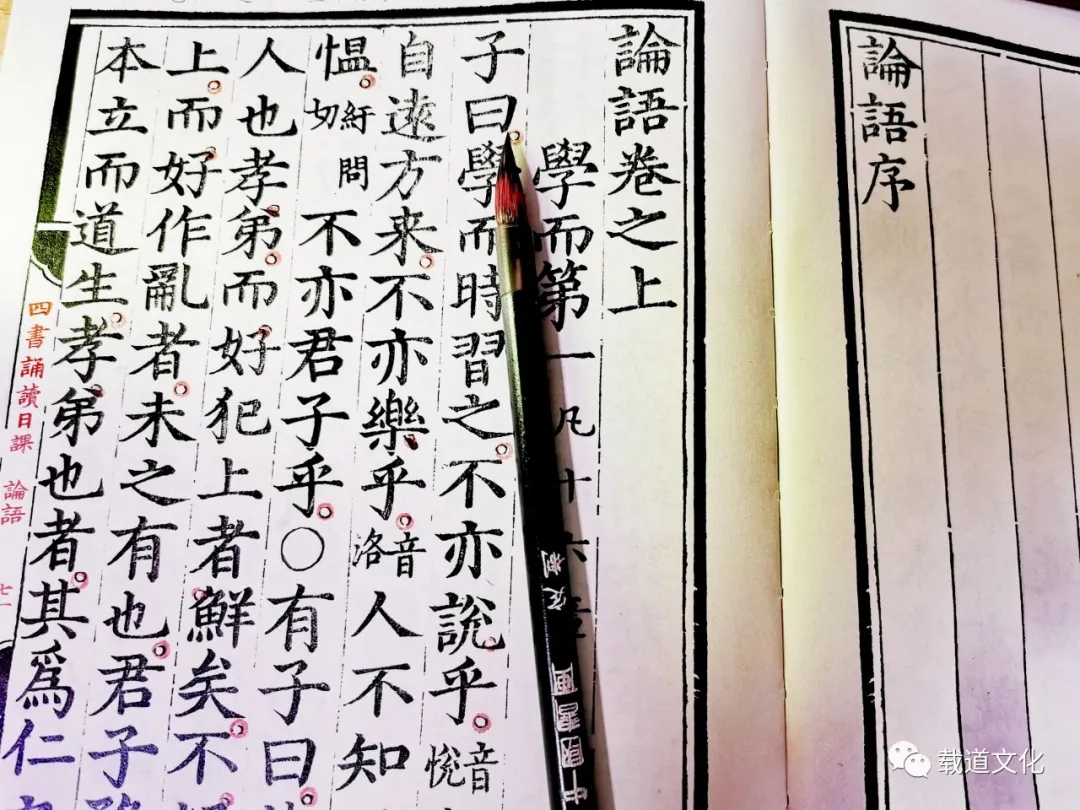 論語序
論語卷之上
學而第一凡十六
子曰學而時習之不亦說乎音悅
自遠方来不亦樂乎音洛人不知
愠紆問切不亦君子乎〇有子曰
人也孝弟而好犯上者鮮矣不
上而好作亂者未之有也君子
本立而道生孝弟也者其爲仁
四書誦讀日課 論語
载道文化